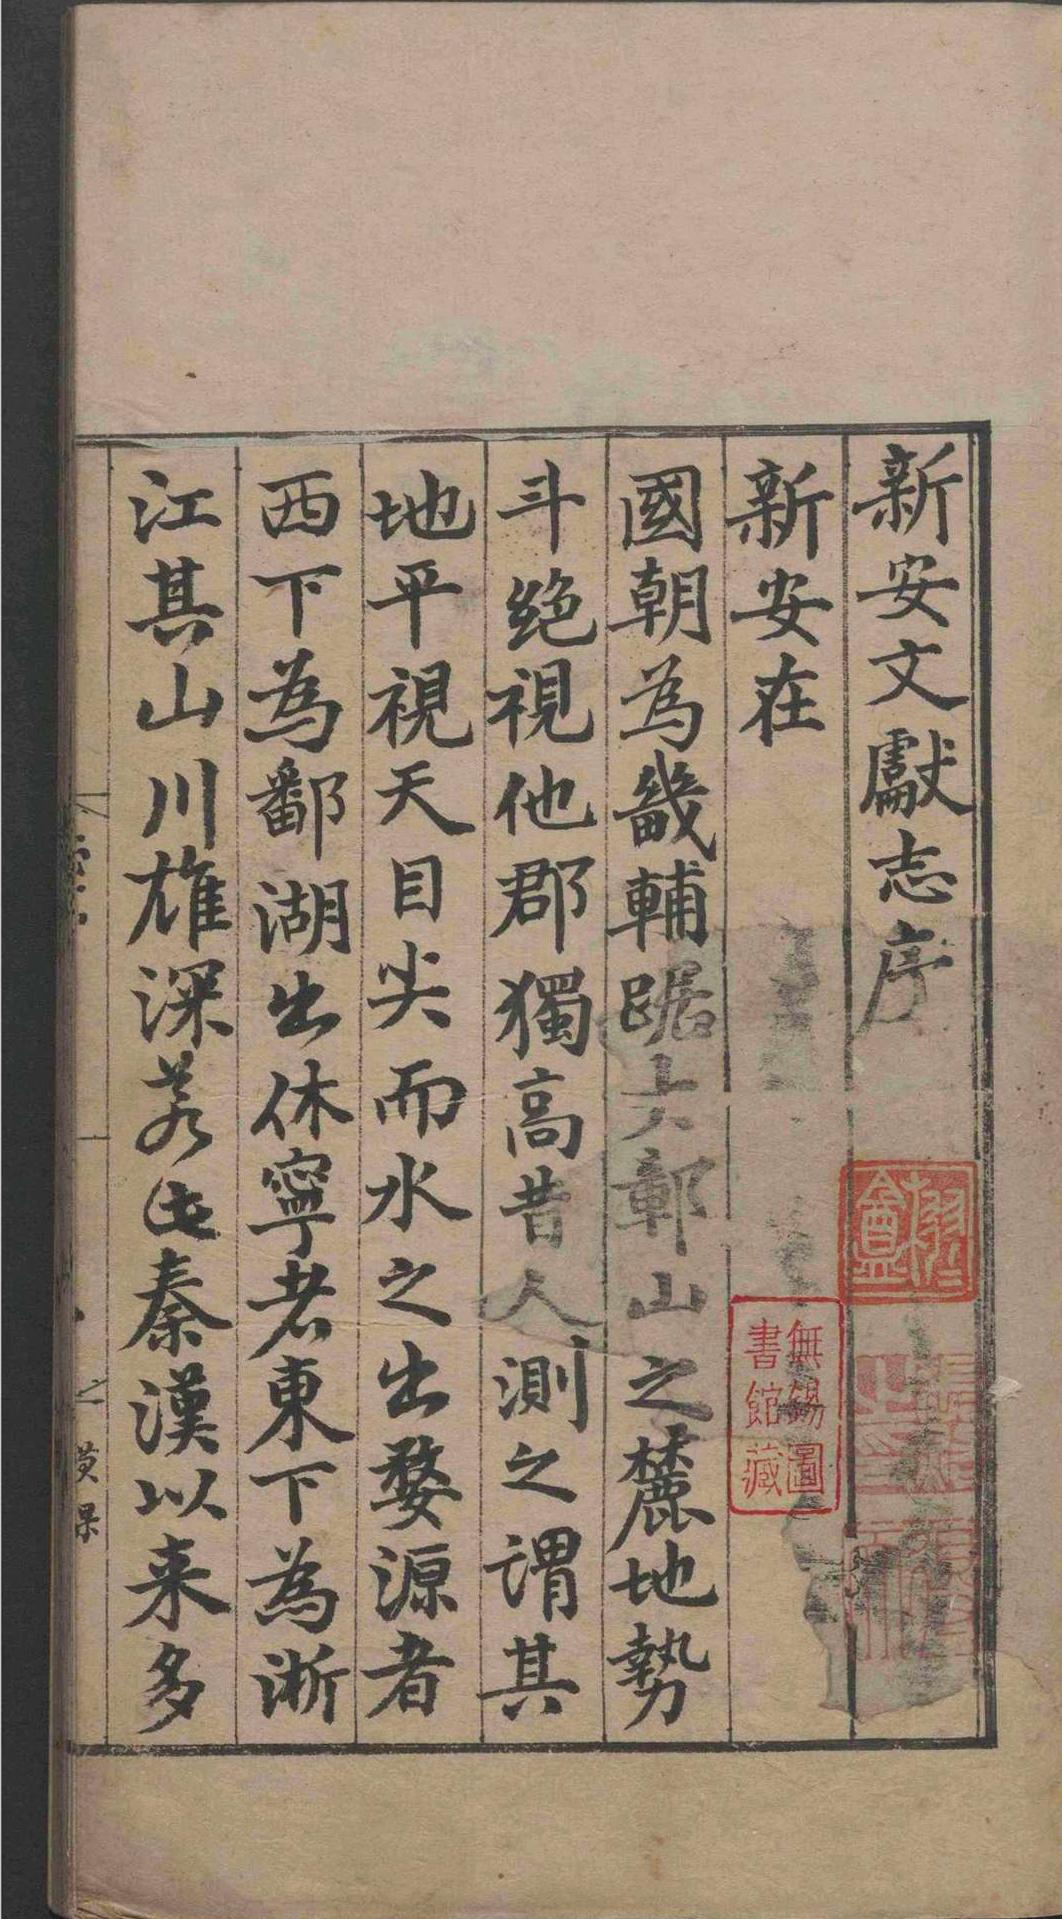 新安文獻志序
新安在
國朝為畿輔踞大鄣山之麓地勢
斗絶視他郡獨高昔人測之謂其
地平視天目尖而水之出婺源者
西下為鄱湖出休寧者東下為浙
江其山川雄深若此秦漢以来多
無錫圖
書館藏
黄杲